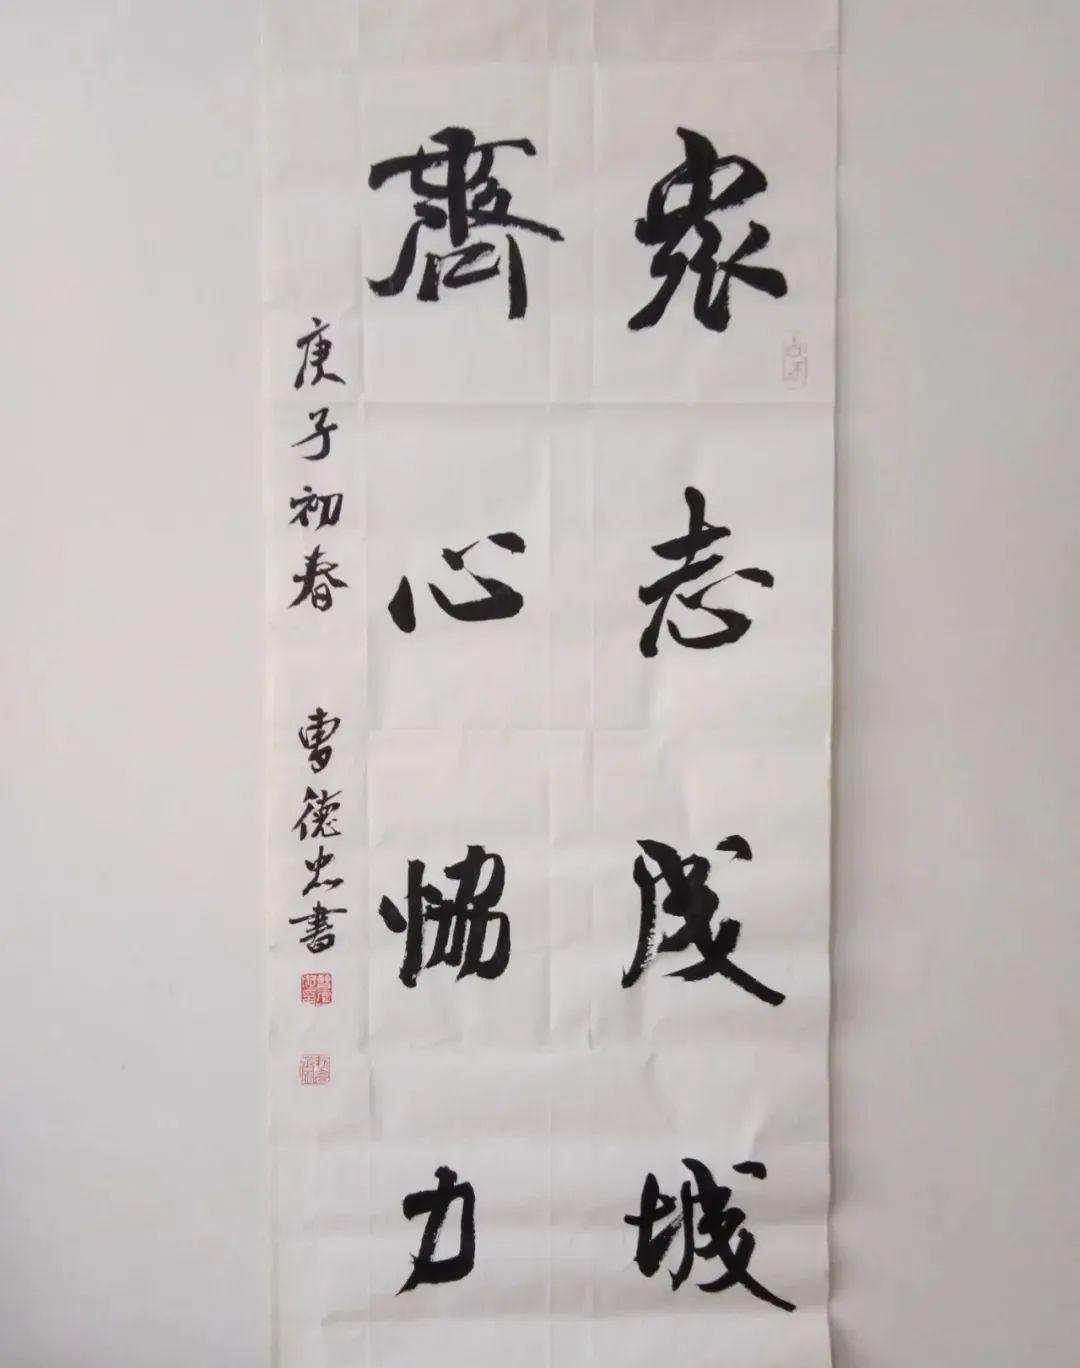 眾志成城
齊心恊力
庚子初春 曹德忠書